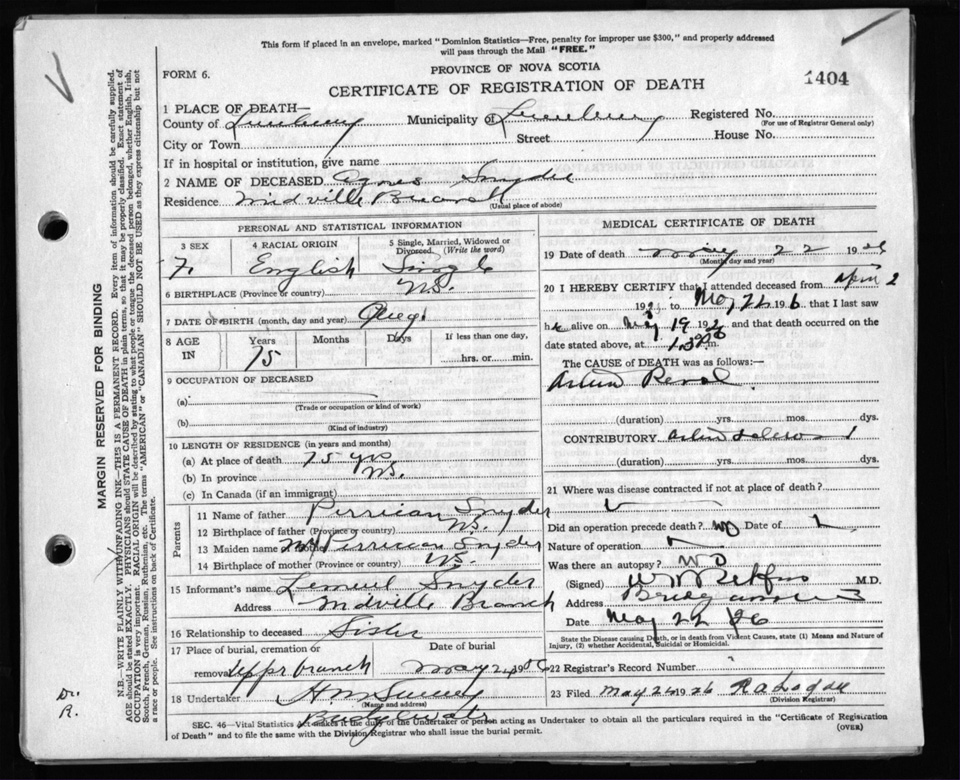 This form if placed in an envelope, marked "Dominion Statistics—Free, penalty for improper use $300," and properly addressed
will pass through the Mail "FREE."
PROVINCE OF NOVA SCOTIA
FORM 6.
CERTIFICATE OF REGISTRATION OF DEATH
1404
1 PLACE OF DEATH—
County of Lunenburg Municipality of Lunenburg Registered No.
(For use of Registrar General only)
City or Town Street House No.
If in hospital or institution, give name
2 NAME OF DECEASED Agnes Snyder
Residence Midville Branch
(Usual place of abode)
PERSONAL AND STATISTICAL INFORMATION
3 SEX 4 RACIAL ORIGIN 5 Single, Married, Widowed or
Divorced. (Write the word)
F. English Single
6 BIRTHPLACE (Province or country) N.S.
7 DATE OF BIRTH (month, day and year)
8 AGE IN Years Months Days If less than one day,
75 hrs. or min.
9 OCCUPATION OF DECEASED
(a)
(Trade or occupation or kind of work)
(b)
(Kind of industry)
10 LENGTH OF RESIDENCE (in years and months)
(a) At place of death 75 yrs
(b) In province N.S.
(c) In Canada (if an immigrant)
Parents
11 Name of father Snyder
12 Birthplace of father (Province or country) N.S.
13 Maiden name of mother Snyder
14 Birthplace of mother (Province or country) N.S.
15 Informant's name Lemuel Snyder
Address Midville Branch
16 Relationship to deceased Sister
17 Place of burial, cremation or Date of burial
removal branch May 24 1926
18 Undertaker
(Name and address)
Bridgewater
MEDICAL CERTIFICATE OF DEATH
19 Date of death May 22 1926
(Month, day and year)
20 I HEREBY CERTIFY that I attended deceased from April 2
192 to May 22 1926 that I last saw
h alive on May 19 192 and that death occurred on the
date stated above, at m.
The CAUSE of DEATH was as follows:—
Renal
(duration) yrs. mos. dys.
CONTRIBUTORY
(duration) yrs. mos. dys.
21 Where was disease contracted if not at place of death?
Did an operation precede death? No Date of
Nature of operation
Was there an autopsy? No
(Signed) M.D.
Address Bridgewater
Date May 22 26
State the Disease causing Death, or in death from Violent Causes, state (1) Means and Nature of
Injury, (2) whether Accidental, Suicidal or Homicidal.
22 Registrar's Record Number
23 Filed May 24 1926
(Division Registrar)
SEC. 46—Vital Statistics Act makes it the duty of the Undertaker or person acting as Undertaker to obtain all the particulars required in the "Certificate of Registration
of Death" and to file the same with the Division Registrar who shall issue the burial permit.
(OVER)
MARGIN RESERVED FOR BINDING
N.B.—WRITE PLAINLY WITH UNFADING INK—THIS IS A PERMANENT RECORD. Every item of information should be carefully supplied.
AGE should be stated EXACTLY. PHYSICIANS should STATE CAUSE OF DEATH in plain terms, so that it may be properly classified. Exact statement of
OCCUPATION is very important. RACIAL ORIGIN will be described by stating to what people or tongue the deceased person belonged, whether English, Irish,
Scotch, French, German, Russian, Ruthenian, etc. The terms "AMERICAN" or "CANADIAN" SHOULD NOT BE USED as they express citizenship but not
a race or people. See instructions on back of Certificate.
Dr.
R.